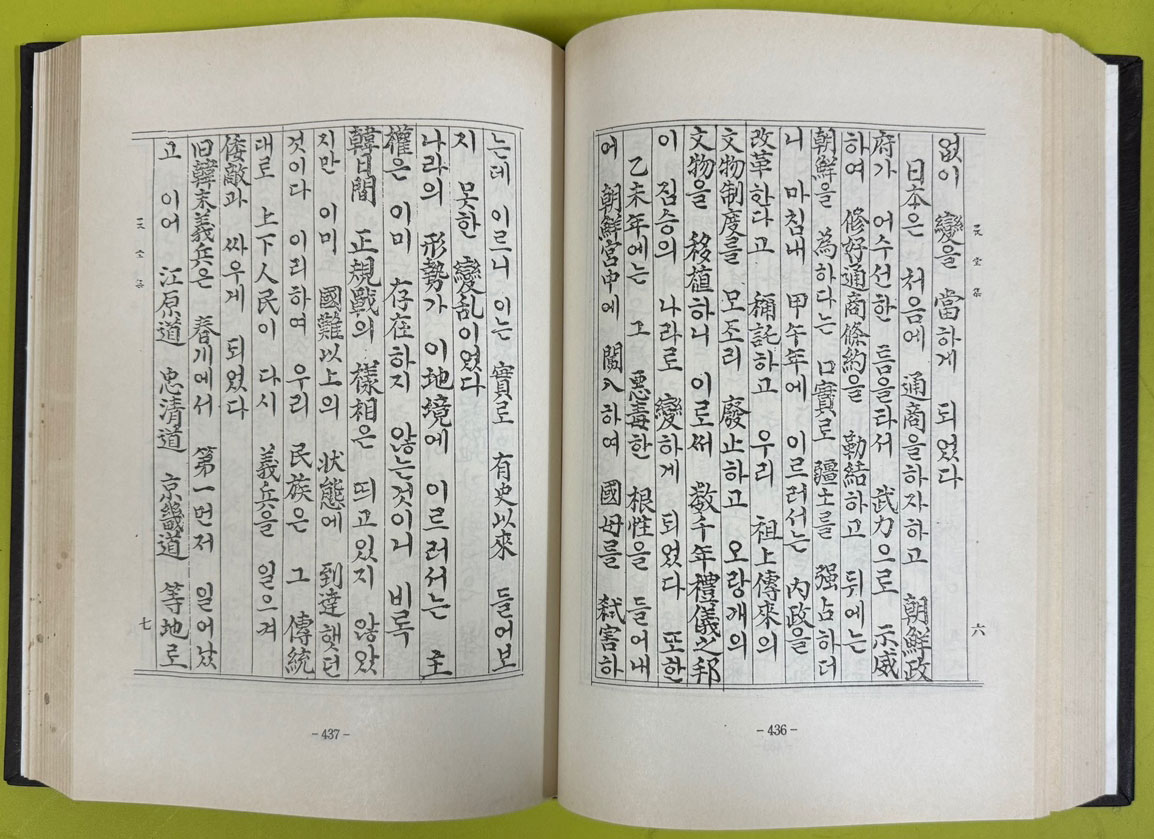 없이 變을 當하게 되었다
日本은 처음에 通商을하자하고 朝鮮政
府가 어수선한 틈을타서 武力으로 示威
하여 修好通商條約을 勒結하고 뒤에는
朝鮮을 為하다는 口實로 疆土를 强占하더
니 마침내 甲午年에 이르러서는 內政을
改革한다고 稱託하고 우리 祖上傳來의
文物制度를 모조리 廢止하고 오랑개의
文物을 移植하니 이로써 数千年禮儀之邦
이 짐승의 나라로 變하게 되었다 또한
乙未年에는 그 悪毒한 根性을 들어내
어 朝鮮宮中에 闖入하여 國母를 弑害하
六
- 436 -
는데 이르니 이는 實로 有史以來 들어보
지 못한 變乱이었다
나라의 形勢가 이地境에 이르러서는 主
權은 이미 存在하지 않는것이니 비록
韓日間 正規戰의 樣相은 띄고있지 않았
지만 이미 國難以上의 状態에 到達햇던
것이다 이리하여 우리 民族은 그 傳統
대로 上下人民이 다시 義兵을 일으켜
倭敵과 싸우게 되었다
旧韓末義兵은 春川에서 第一먼저 일어났
고 이어 江原道 忠清道 京畿道 等地로
七
- 437 -